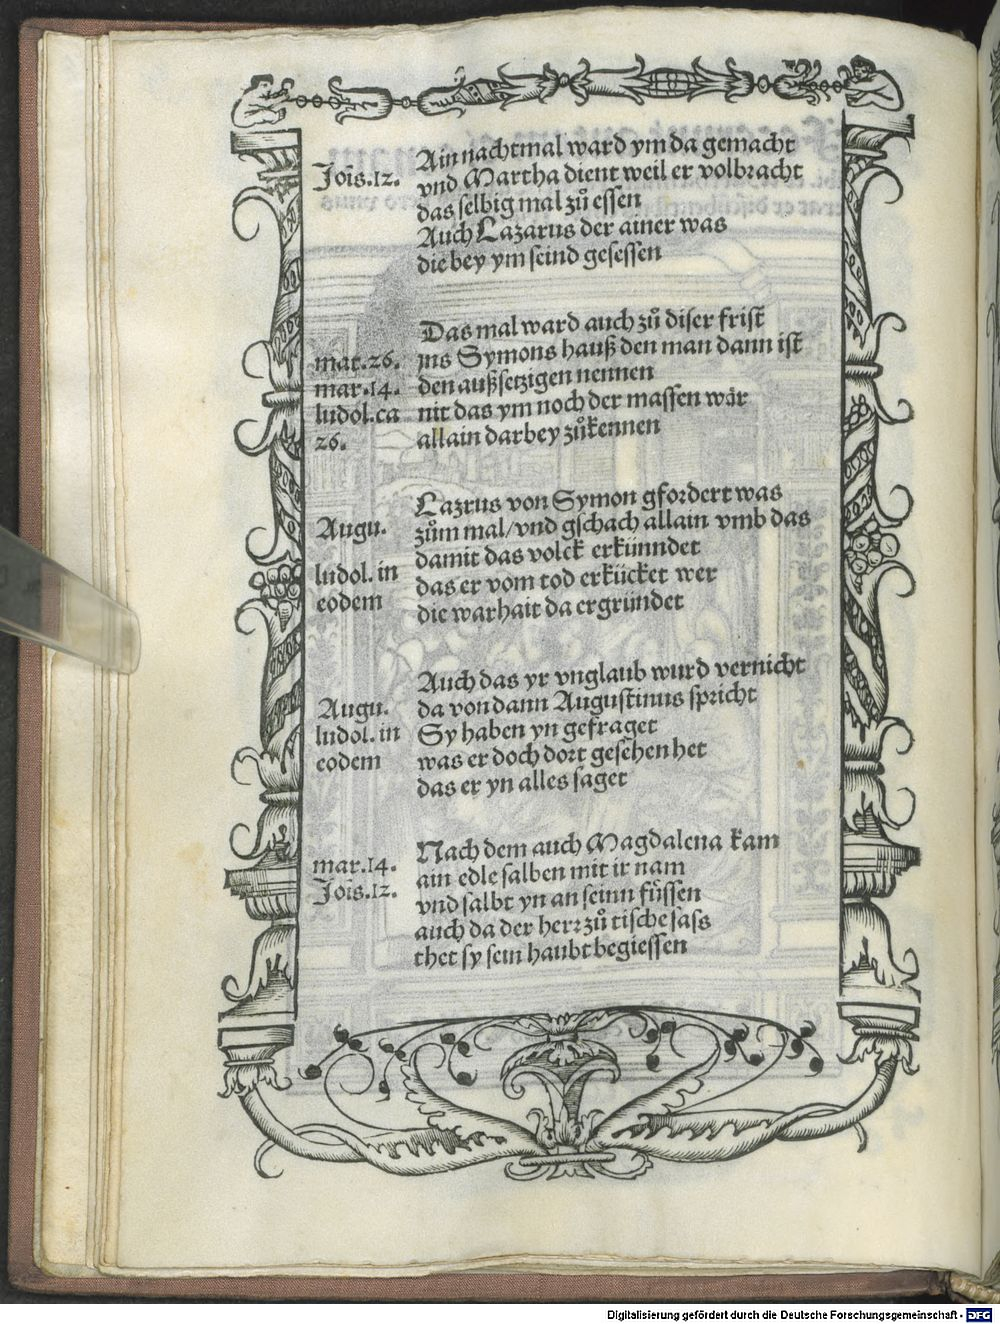 Joīs.12.
Ain nachtmal ward ym da gemacht
vnd Martha dient weil er volbracht
das selbig mal zů essen
Auch Lazarus der ainer was
die bey ym seind gesessen
mat.26.
mar.14.
ludol.ca
26.
Das mal ward auch zů diser frist
jns Symons hauß den man dann ist
den außsetzigen nennen
nit das ym noch der massen wår
allain darbey zůkennen
Augu.
ludol. in
eodem
Lazrus von Symon gfordert was
zům mal/vnd gschach allain vmb das
damit das volck erkünndet
das er vom tod erkücket wer
die warhait da ergründet
Augu.
ludol. in
eodem
Auch das yr vnglaub wurd vernicht
da von dann Augustinus spricht
Sy haben yn gefraget
was er doch dort gesehen het
das er yn alles saget
mar.14.
Joīs.12.
Nach dem auch Magdalena kam
ain edle salben mit ir nam
vnd salbt yn an seinn füssen
auch da der herr zů tische sass
thet sy sein haubt begiessen
Digitalisierung gefördert durch die Deutsche Forschungsgemeinschaft - DFG